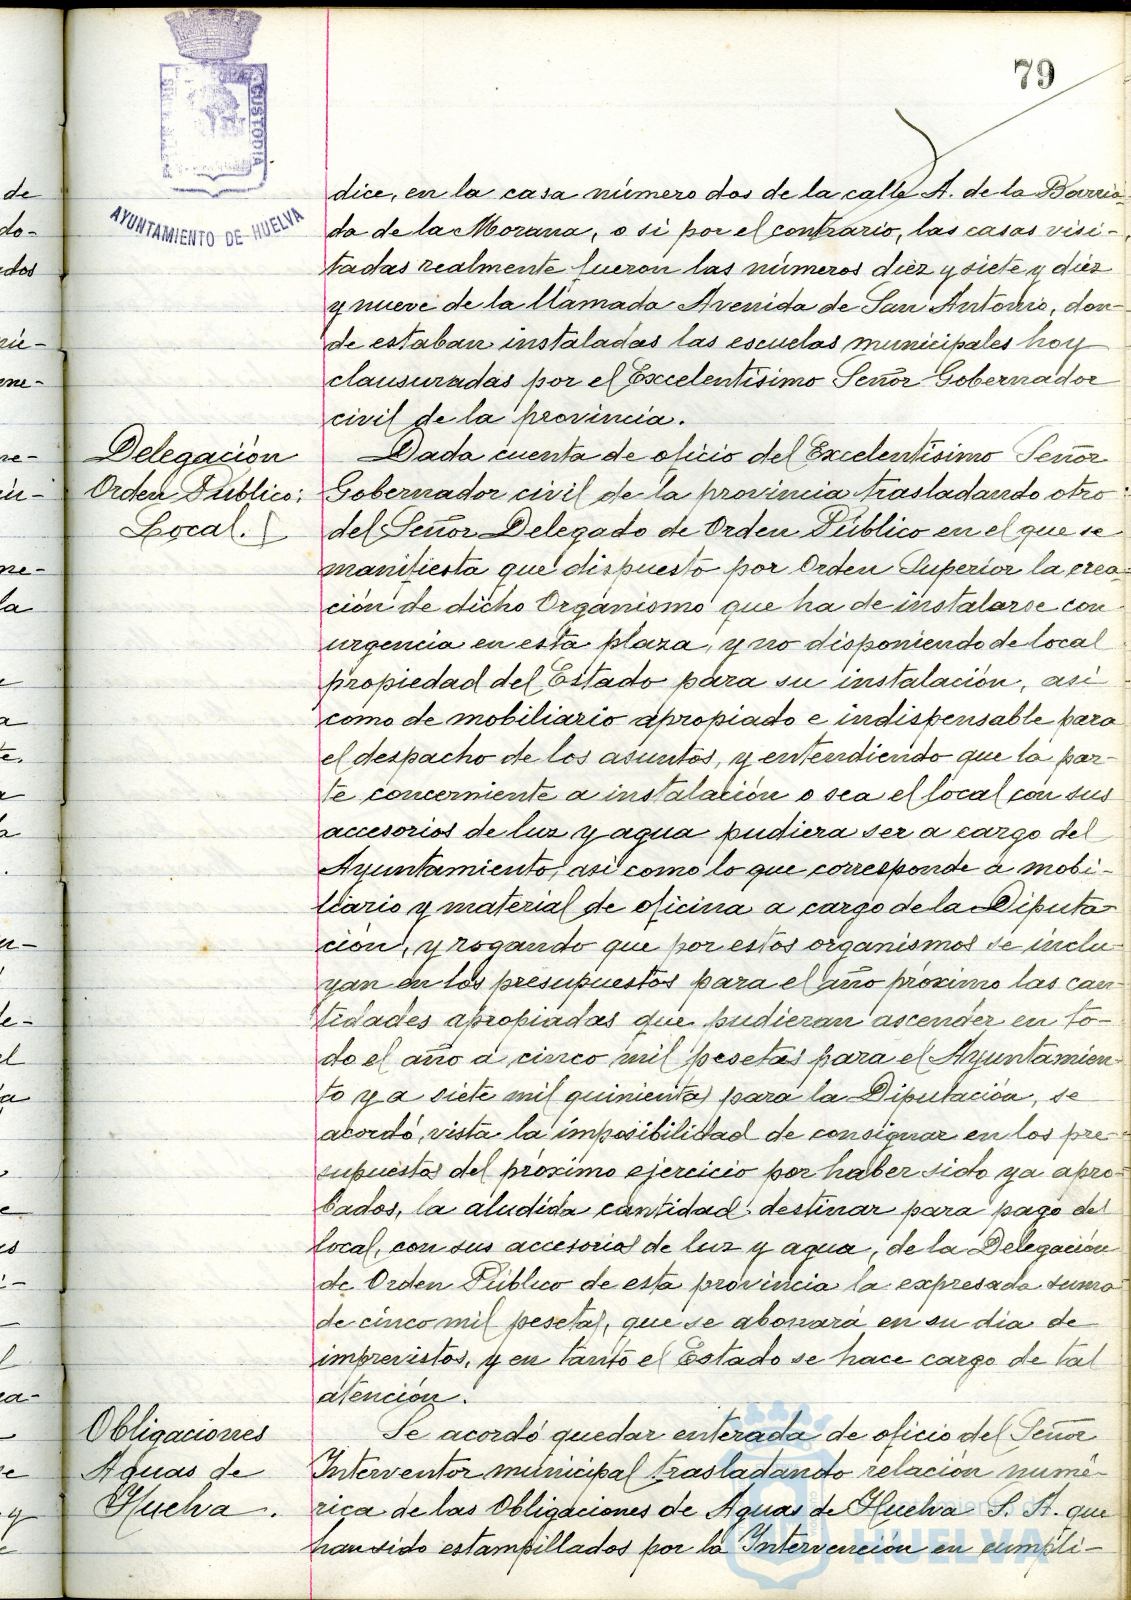 79
AYUNTAMIENTO DE HUELVA
CUSTODIA
dice, en la casa número dos de la calle A. de la Barria-
da de la Morana, o si por el contrario, las casas visi-
tadas realmente fueron las números diez y siete y diez
y nueve de la llamada Avenida de San Antonio, don-
de estaban instaladas las escuelas municipales hoy
clausuradas por el Excelentísimo Señor Gobernador
civil de la provincia.
Delegación
Orden Público:
Local.
Dada cuenta de oficio del Excelentísimo Señor
Gobernador civil de la provincia trasladando otro
del Señor Delegado de Orden Público en el que se
manifiesta que dispuesto por Orden Superior la crea-
ción de dicho Organismo que ha de instalarse con
urgencia en esta plaza, y no disponiendo de local
propiedad del Estado para su instalación, asi
como de mobiliario apropiado e indispensable para
el despacho de los asuntos, y entendiendo que la par-
te concerniente a instalación o sea el local con sus
accesorios de luz y agua pudiera ser a cargo del
Ayuntamiento, asi como lo que corresponde a mobi-
liario y material de oficina a cargo de la Diputa-
ción, y rogando que por estos organismos se inclu-
yan en los presupuestos para el año próximo las can-
tidades apropiadas que pudieran ascender en to-
do el año a cinco mil pesetas para el Ayuntamien-
to y a siete mil quinientas para la Diputación, se
acordó, vista la imposibilidad de consignar en los pre-
supuestos del próximo ejercicio por haber sido ya apro-
bados, la aludida cantidad: destinar para pago del
local, con sus accesorios de luz y agua, de la Delegación
de Orden Público de esta provincia la expresada suma
de cinco mil pesetas, que se abonará en su dia de
imprevistos, y en tanto el Estado se hace cargo de tal
atención.
Obligaciones
Aguas de
Huelva.
Se acordó quedar enterada de oficio del Señor
Interventor municipal trasladando relación numé-
rica de las Obligaciones de Aguas de Huelva S. A. que
han sido estampillados por la Intervención en cumpli-
HUELVA